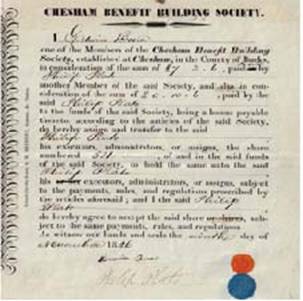 CHESHAM BENEFIT BUILDING SOCIETY.
I
one of the Members of the Chesham Benefit Building
Society, established at Chesham, in the County of Bucks,
in consideration of the sum of £7 2. 6, paid by
Philip Plato
another Member of the said Society, and also in con-
sideration of the sum of paid by the
said Philip Plato
to the funds of the said Society, being a bonus payable
thereto according to the articles of the said Society,
do hereby assign and transfer to the said
Philip Plato
his executors, administrators, or assigns, the share
numbered of and in the said funds
of the said Society, to hold the same unto the said
Philip Plato
his executors, administrators, or assigns, subject
to the payments, rules, and regulations prescribed by
the articles aforesaid; and I the said Philip
Plato
do hereby agree to accept the said share or shares, sub-
ject to the same payments, rules, and regulations
As witness our hands and seals the day of
November 1846
Philip Plato